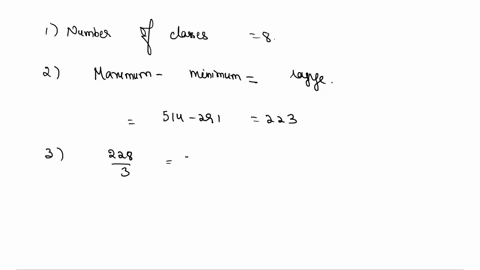 1) Number of classes = 8.
2) Maximum - minimum = range.
= 514 - 291 = 223
3) 228/3 =